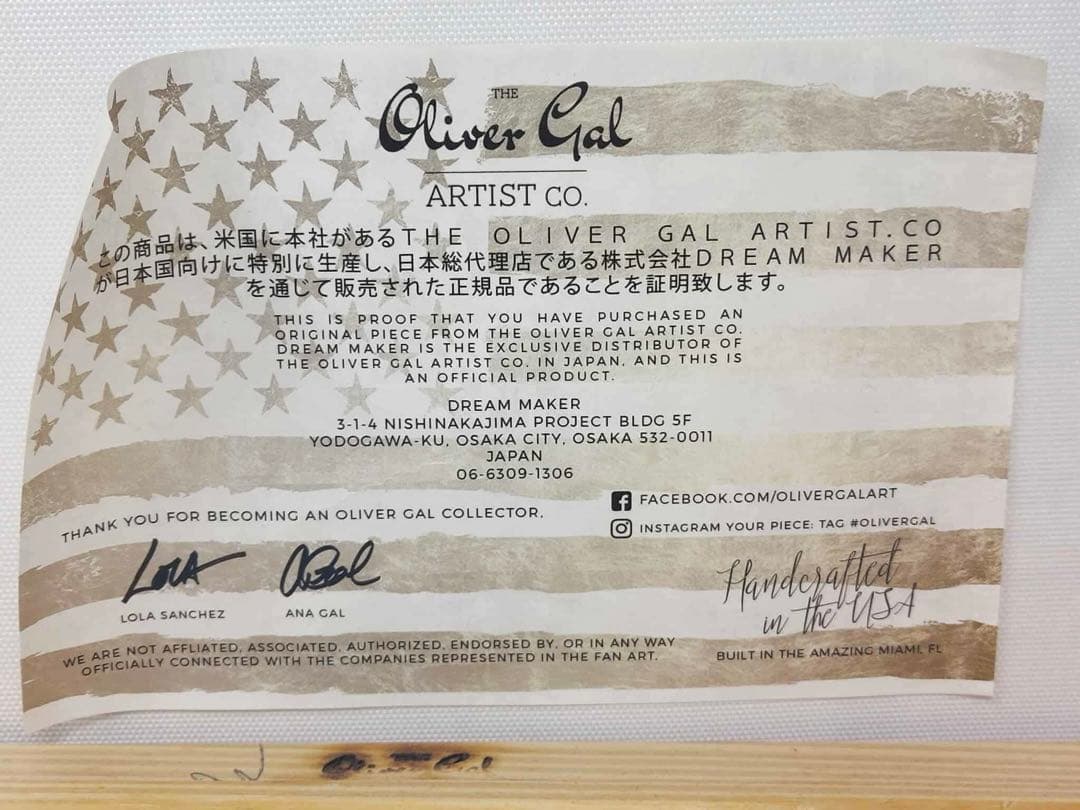 THE
Oliver Gal
ARTIST CO.
この商品は、米国に本社があるTHE OLIVER GAL ARTIST.CO
が日本国向けに特別に生産し、日本総代理店である株式会社DREAM MAKER
を通じて販売された正規品であることを証明致します。
THIS IS PROOF THAT YOU HAVE PURCHASED AN
ORIGINAL PIECE FROM THE OLIVER GAL ARTIST CO.
DREAM MAKER IS THE EXCLUSIVE DISTRIBUTOR OF
THE OLIVER GAL ARTIST CO. IN JAPAN, AND THIS IS
AN OFFICIAL PRODUCT.
DREAM MAKER
3-1-4 NISHINAKAJIMA PROJECT BLDG 5F
YODOGAWA-KU, OSAKA CITY, OSAKA 532-0011
JAPAN
06-6309-1306
FACEBOOK.COM/OLIVERGALART
INSTAGRAM YOUR PIECE: TAG #OLIVERGAL
THANK YOU FOR BECOMING AN OLIVER GAL COLLECTOR.
LOLA
LOLA SANCHEZ
ANA GAL
Handcrafted
in the USA
BUILT IN THE AMAZING MIAMI, FL
WE ARE NOT AFFLIATED, ASSOCIATED, AUTHORIZED, ENDORSED BY, OR IN ANY WAY
OFFICIALLY CONNECTED WITH THE COMPANIES REPRESENTED IN THE FAN ART.
Oliver Gal